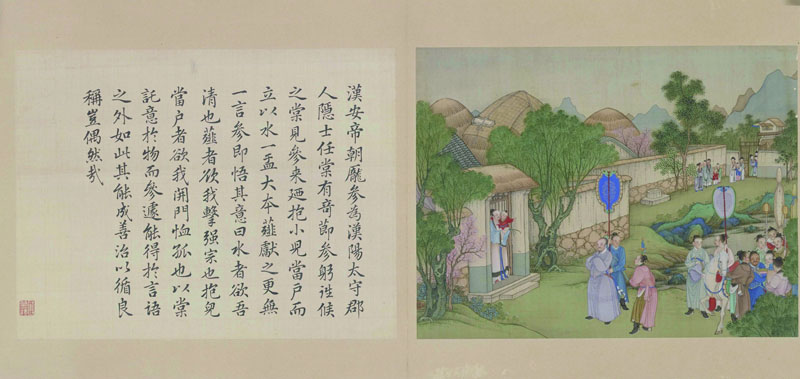 漢安帝朝龐參為漢陽太守郡
人隱士任棠有奇節參躬徃候
之棠見參来廼抱小児當户而
立以水一盂大本薤獻之更無
一言參即悟其意曰水者欲吾
清也薤者欲我擊强宗也抱兒
當户者欲我開門恤孤也以棠
託意於物而參遽能得於言語
之外如此其能成善治以循良
稱豈偶然哉